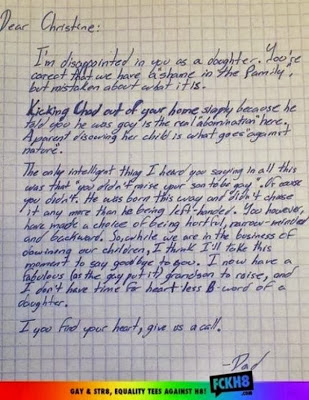 Dear Christine:
I'm disappointed in you as a daughter. You're
corect that we have a "shame in the family",
but mistaken about what it is.
Kicking Chad out of your home simply because he
told you he was gay is the real "abomination" here.
A parent disowning her child is what goes "against
nature".
The only intelligent thing I heard you saying in all this
was that "you didn't raise your son to be gay". Of cause
you didn't. He was born this way and didn't choose
it any more than he being left-handed. You however,
have made a choice of being hurtful, narrow-minded
and backward. So, while we are in the business of
disowning our children, I think I'll take this
moment to say goodbye to you. I now have a
fabulous (as the gay put it) grandson to raise, and
I don't have time for heart less B-word of a
daughter.
I you find your heart, give us a call.
-Dad
GAY & STR8, EQUALITY TEES AGAINST H8!
FCKH8
.COM